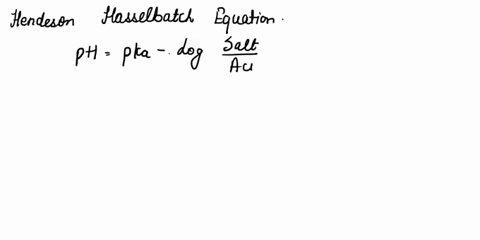 Hendeson Hasselbatch Equation.
pH = pka - log Salt/Aci